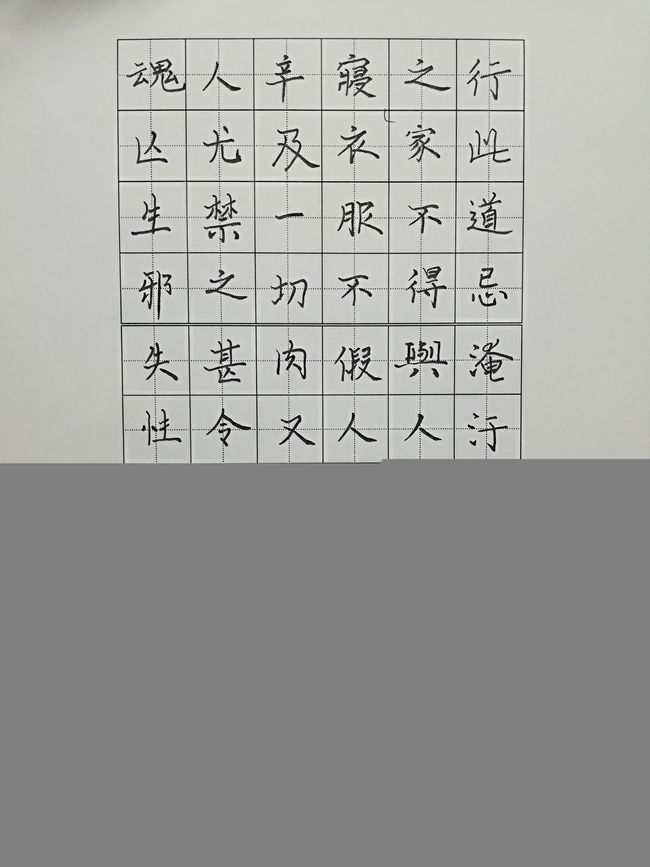 行此道忌淹汙
之家不得與人
寢衣服不假人
辛及一切肉又
人尤禁之甚令
魂亾生邪失性